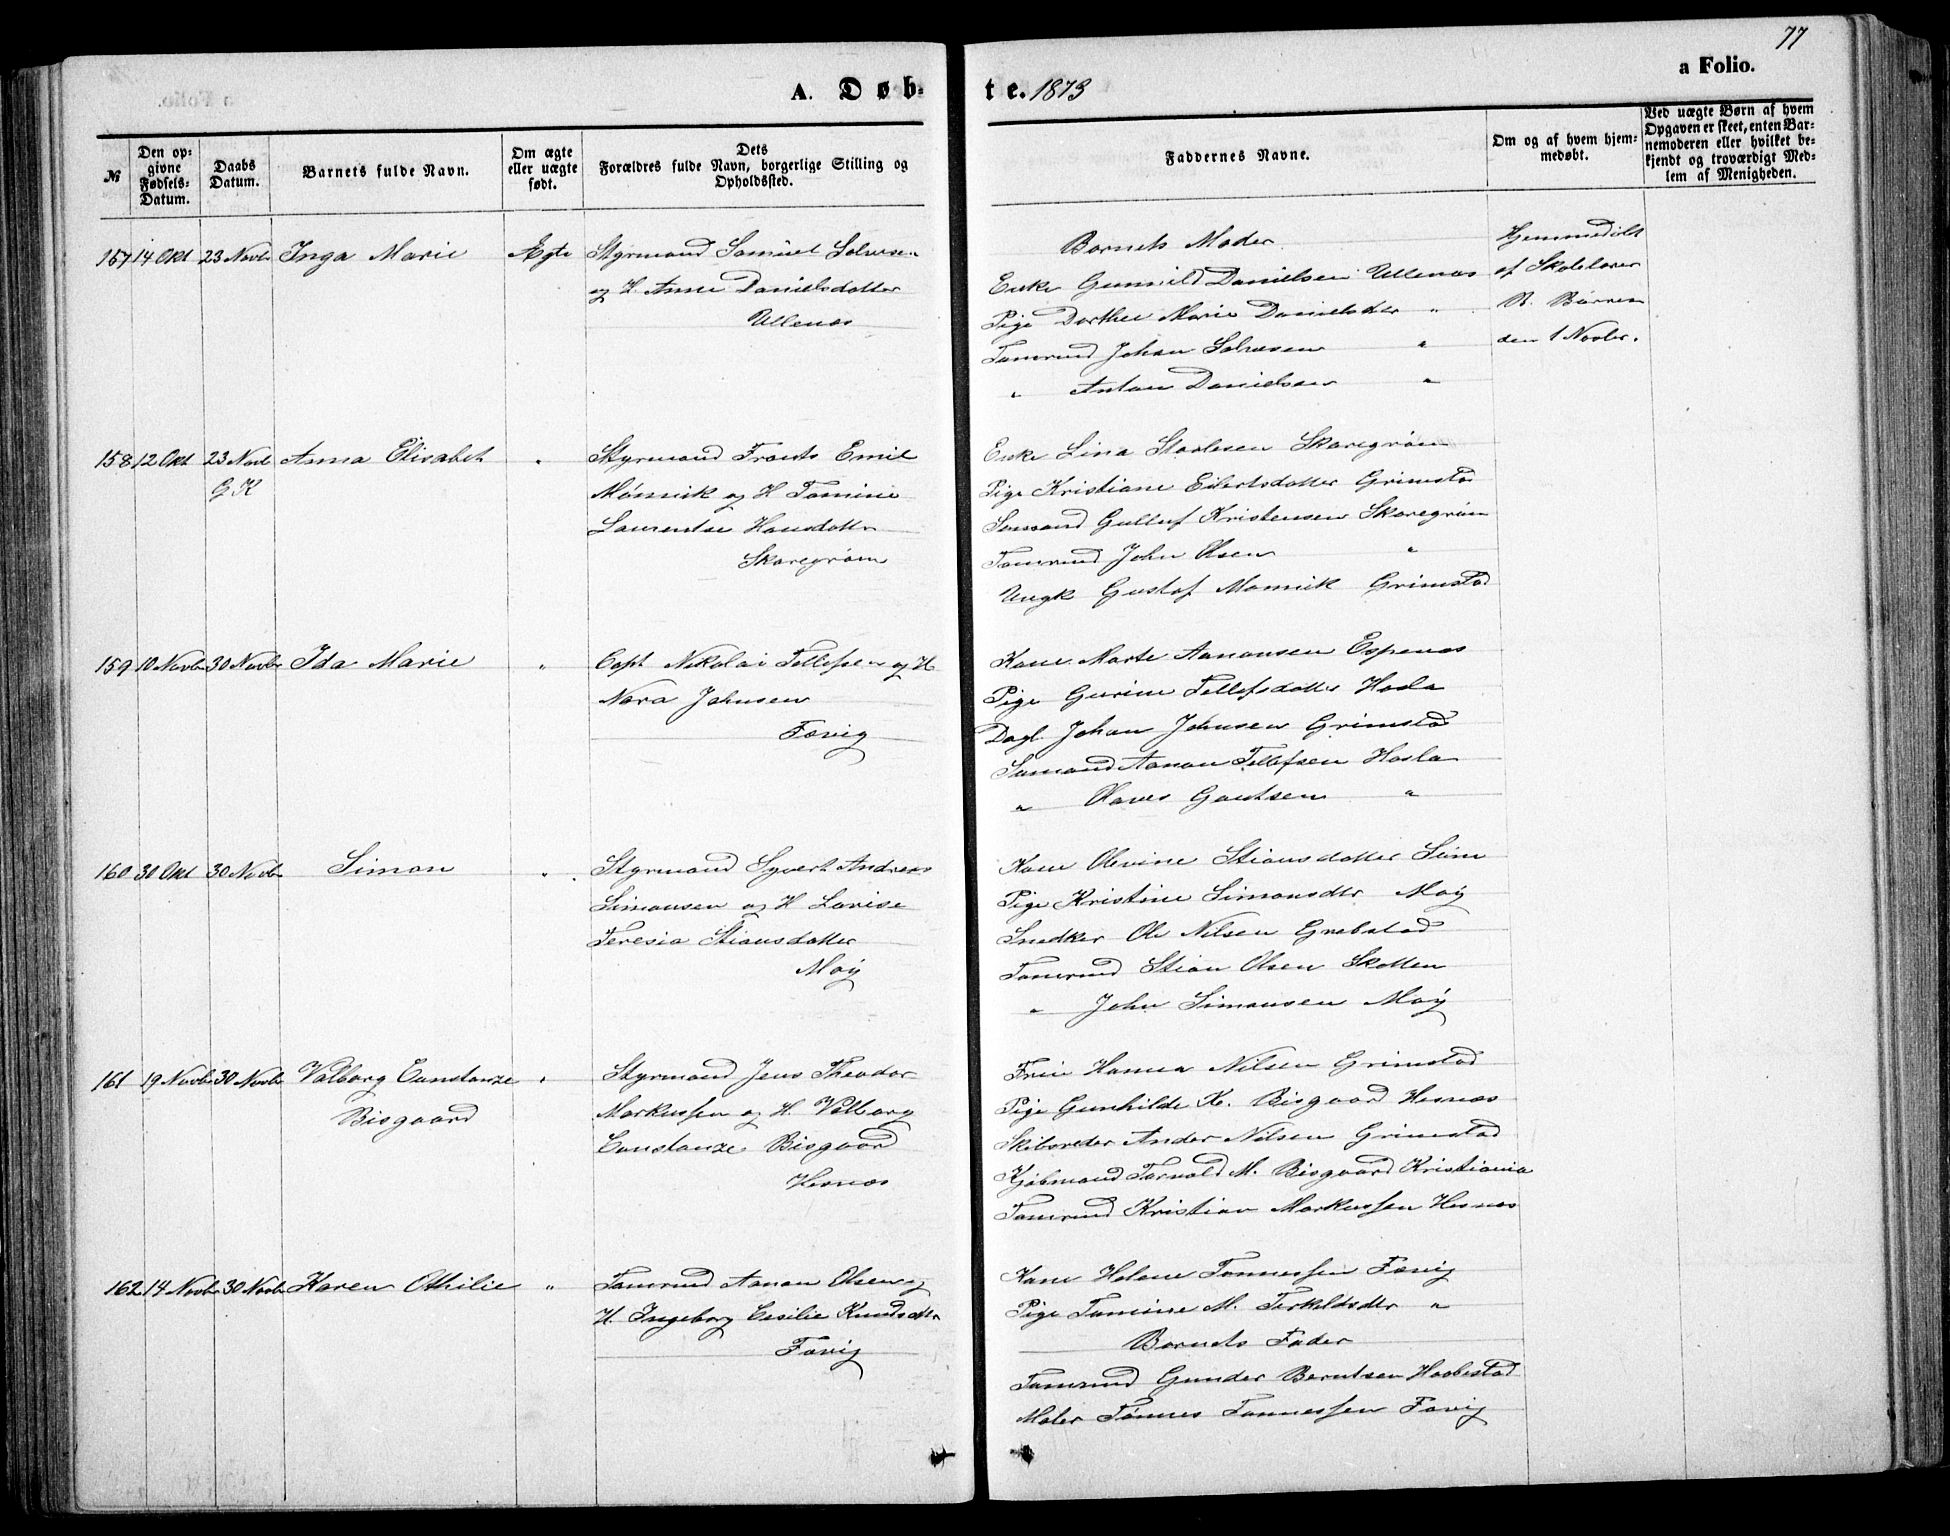 77
A. Døb-
te. 1873
a Folio.
№
Den op-
givne
Fødsels-
Datum.
Daabs
Datum.
Barnets fulde Navn.
Om ægte
eller uægte
født.
Dets
Forældres fulde Navn, borgerlige Stilling og
Opholdssted.
Faddernes Navne.
Om og af hvem hjem-
medøbt.
Ved uægte Børn af hvem
Opgaven er skeet, enten Bar-
nemoderen eller hvilket be-
kjendt og troværdigt Med-
lem af Menigheden.
157 14 Okt 23 Novbr Inga Marie Ægte
Styrmand Samuel Salvesen
og H. Anne Danielsdatter
Ullenæs
Barnets Moder
Enke Gunnild Danielsen Ullenæs
Pige Dorthee Marie Danielsdtr "
Tømrmd Johan Salvesen "
" Anton Danielsen "
Hjemmedøbt
af Skolelærer
den 1 Novbr.
158 12 Okt 23 Novb Anna Elisabet "
G K
Styrmand Frants Emil
Mønnick og H Tomine
Laurentse Hansdattr
Skaregrøm
Enke Lina Skaregrøm
Pige Kristiane Eilertsdatter Grimstad
Sømand Gulluf Kristensen Skaregrøm
Tømrmd John Olsen "
Ungk Gustaf Mønnick Grimstad
159 10 Novbr 30 Novbr Ida Marie "
Capt Nikolai Tellefsen og H
Nora Johnsen
Fævig
Kone Marte Aanonsen Espenæs
Pige Gurine Tellefsdatter Hasla
Dagl. Johan Johnsen Grimstad
Sømand Aanon Tellefsen Hasla
" Olaves Gautsen "
160 31 Okt 30 Novbr Simon "
Styrmand Syvert Andreas
Simonsen og H Lovise
Teresia Stiansdatter
Moÿ
Kone Olevine Stiansdatter
Pige Kristine Simonsdtr Moÿ
Snedker Ole Nilsen Grebstad
Tømrmd Stian Olsen Skotten
" John Simonsen Moÿ
161 19 Novbr 30 Novbr Valborg Constanze "
Bisgaard
Styrmand Jens Theodor
Markussen og H. Valborg
Constanze Bisgaard
Hesnæs
Frue Hanna Nilsen Grimstad
Pige Gunhilde K. Bisgaard Hesnæs
Skibsreder Ander Nilsen Grimstad
Kjøbmand Torvald M. Bisgaard Kristiania
Tømrmd Kristian Markussen Hesnæs
162 14 Novbr 30 Novbr Karen Othilie "
Tømrmd Aanon Olsen og
H. Ingeborg Cesilie Knudsdtr
Fævig
Kone Helene Tønnessen Fævig
Pige Tomine M. Terkeldsdtr "
Barnets Fader
Tømrmd Gunder Berntsen Haabestad
Maler Tønnes Tønnessen Fævig